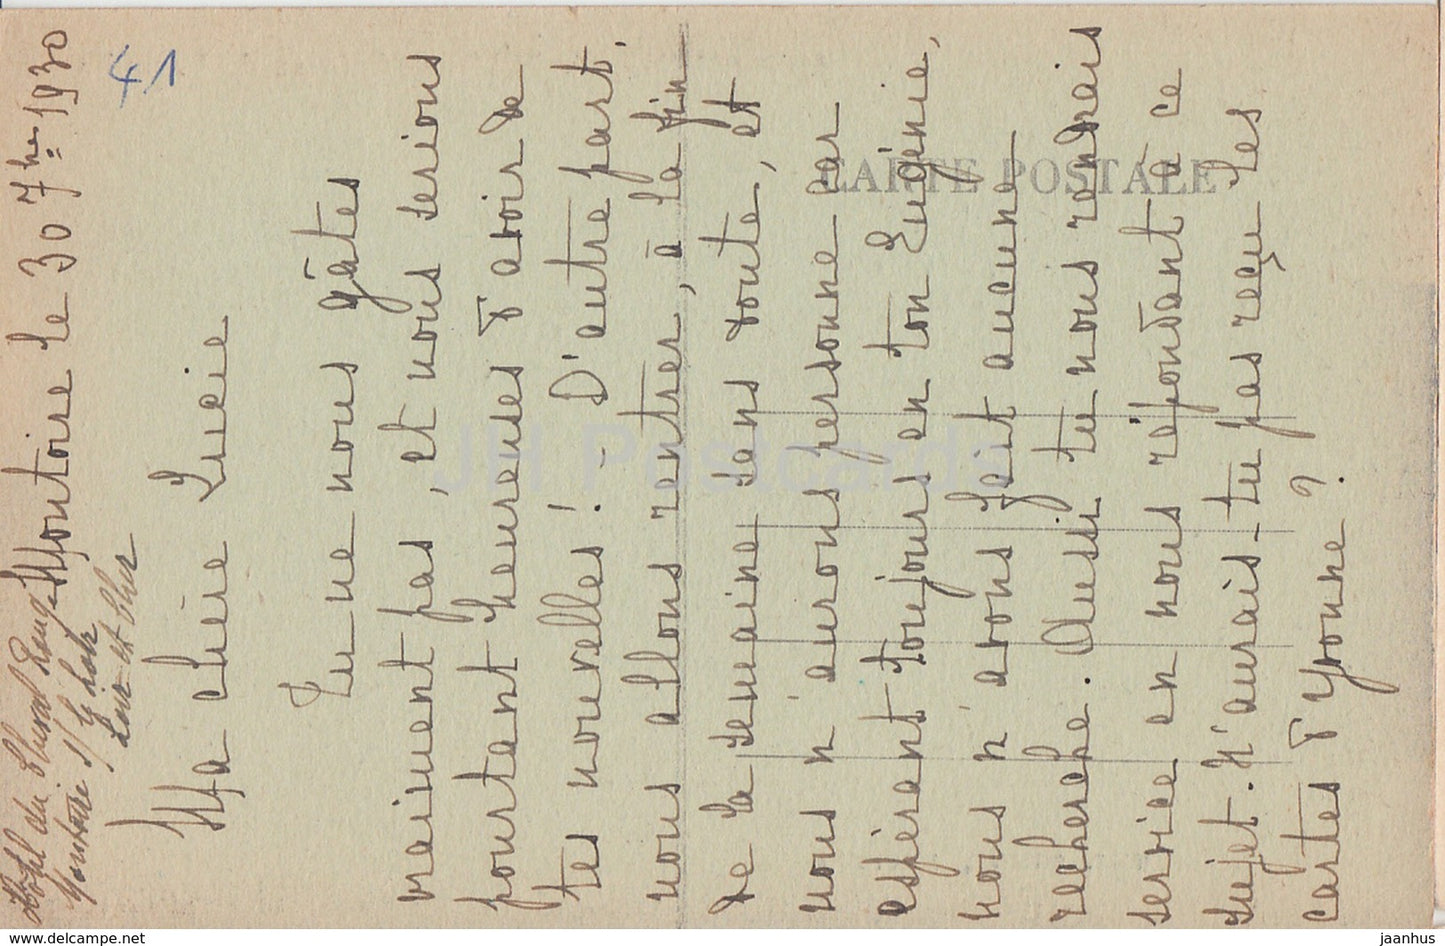 Hôtel du Cheval Rouge Montoire le 30 7bre 1930
Montoire s/ le Loir
Loir et Cher
41
Ma chère Lucie
Tu ne nous gâtes
vraiment pas, et nous serions
pourtant heureuses d'avoir de
tes nouvelles! - D'autre part,
nous allons rentrer, à la fin
de la semaine sans doute, et
nous n'aurons personne car
espérant toujours en ton Eugénie,
nous n'avons fait aucune
recherche. Aussi tu nous rendrais
service en nous répondant à ce
sujet. N'aurais-tu pas reçu les
cartes d'Yvonne?
CARTE POSTALE
JH Postcards
www.delcampe.net
jaanhus